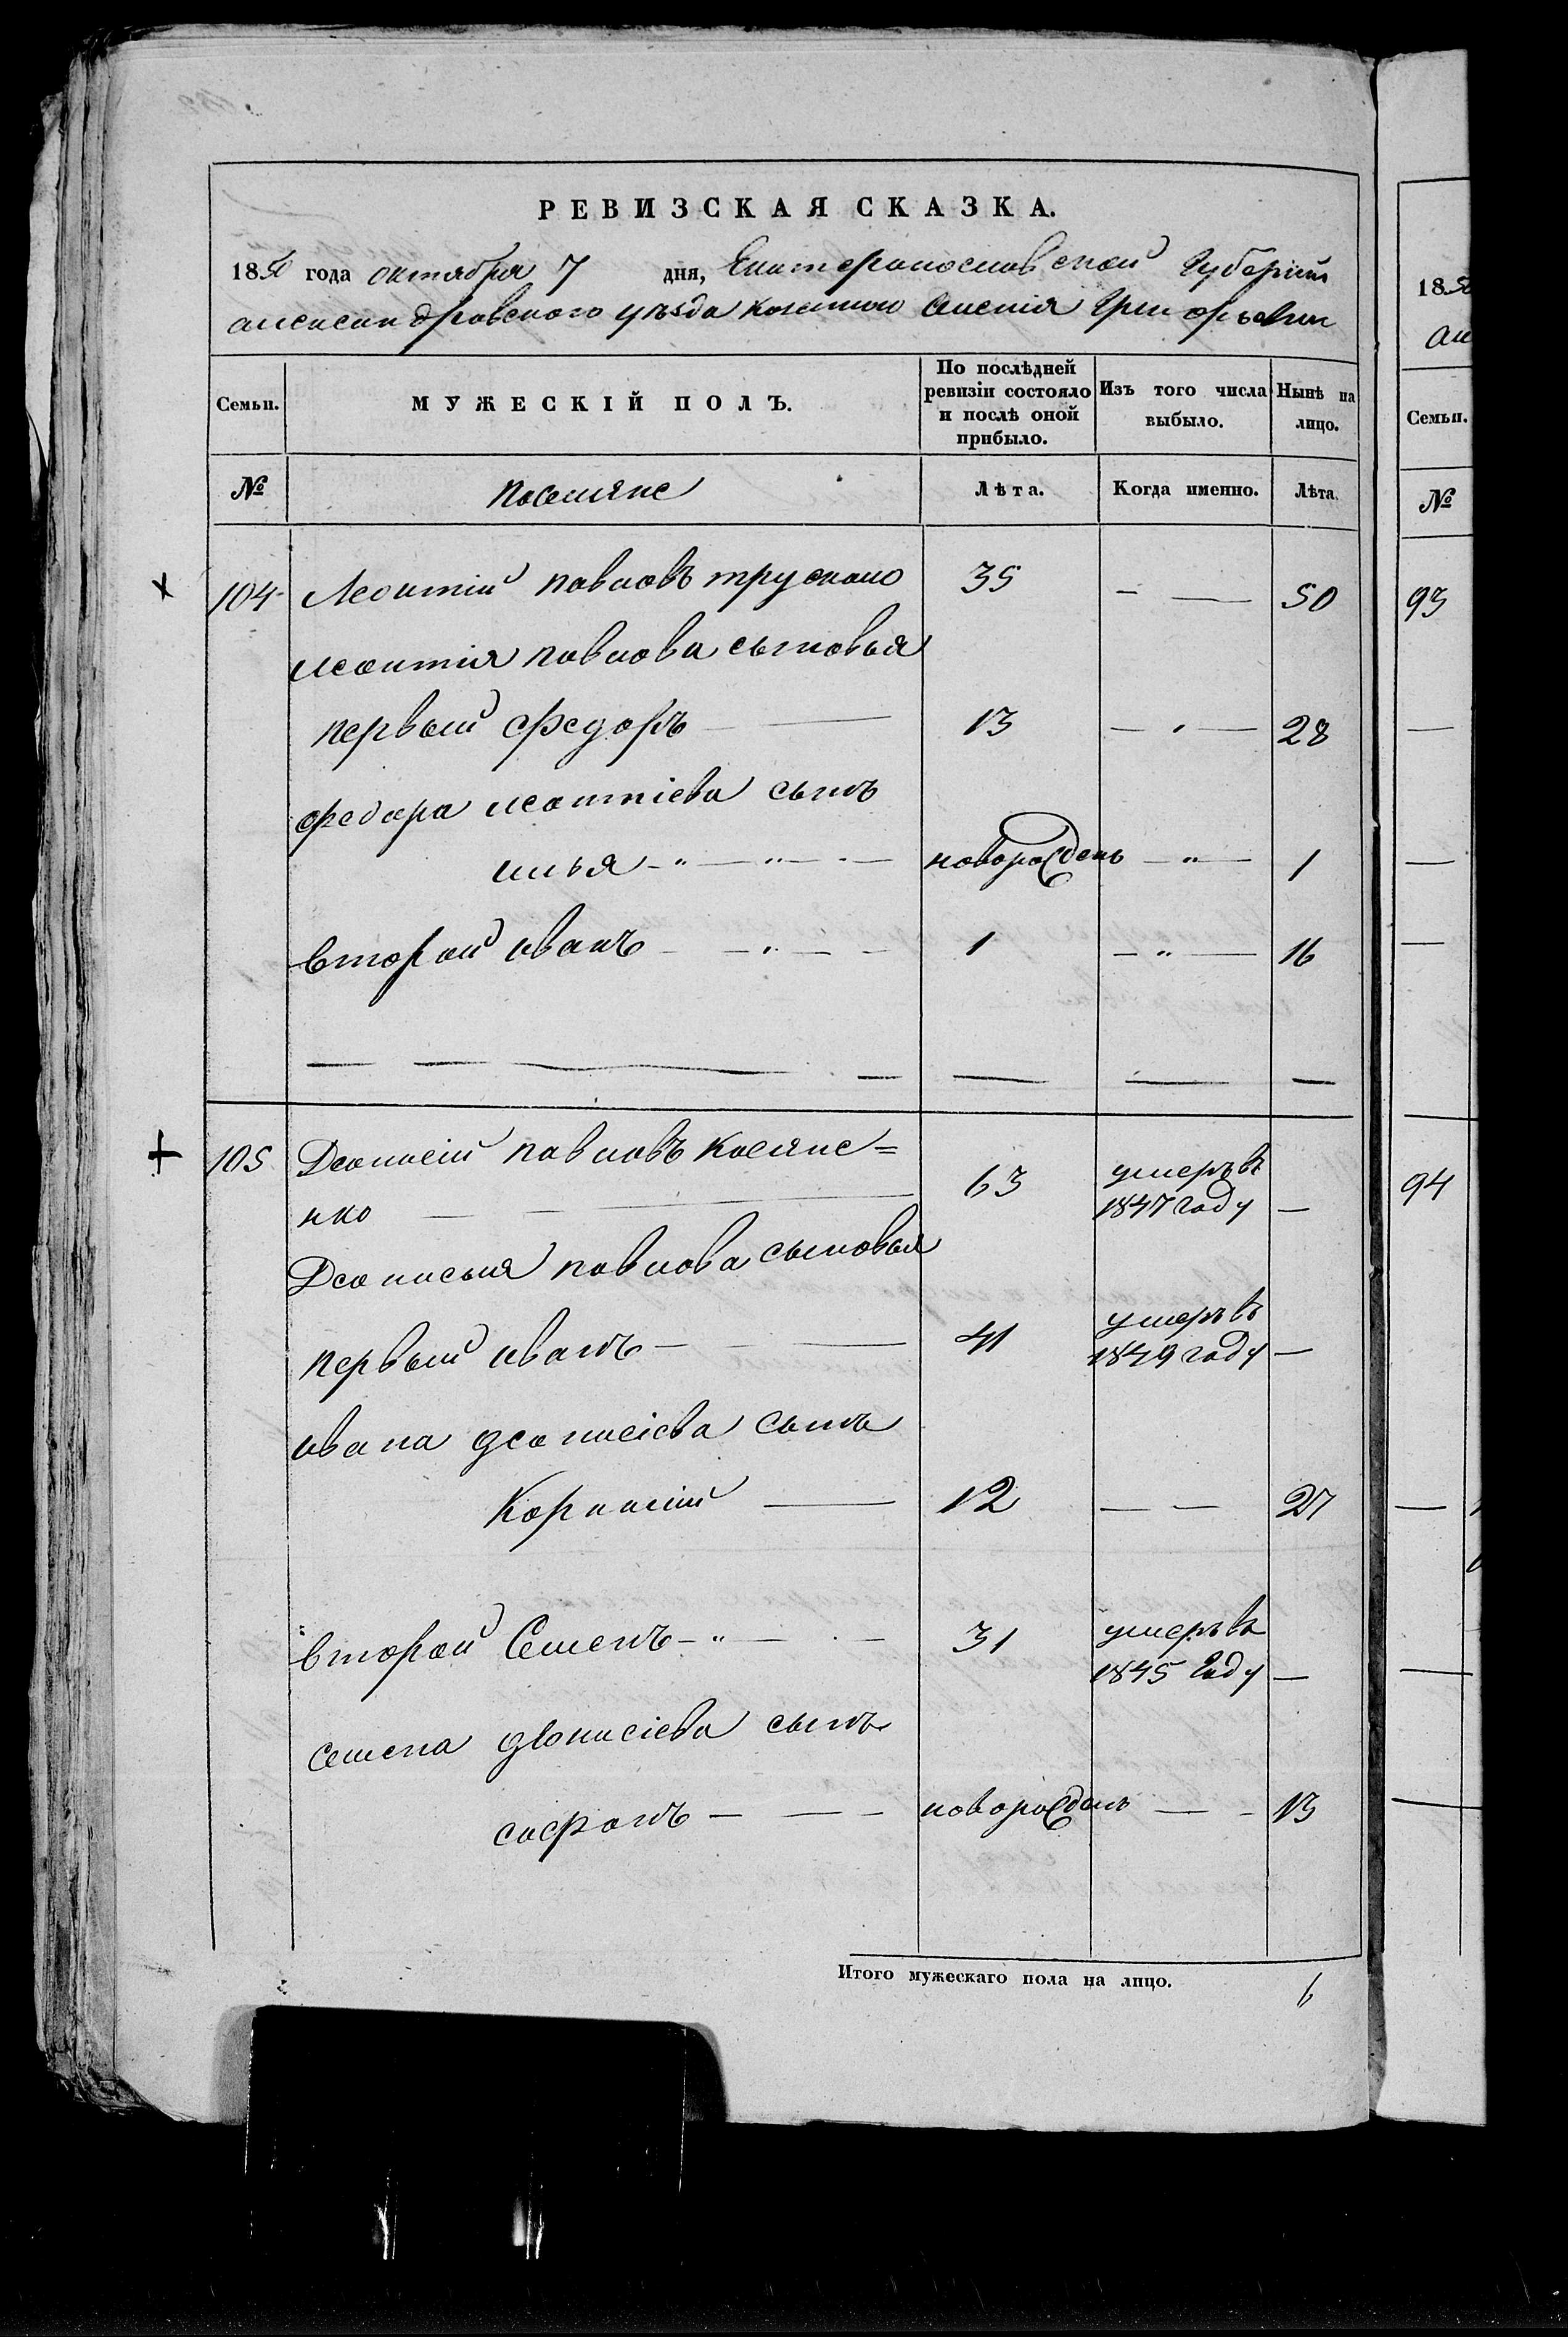 РЕВИЗСКАЯ СКАЗКА.
1850 года октября 7 дня, Екатеринославской Губерніи
александровского уѣзда
Семьи.
МУЖЕСКІЙ ПОЛЪ.
По послѣдней ревизіи состояло и послѣ оной прибыло.
Изъ того числа выбыло.
Нынѣ на лицо.
№
поселяне
Лѣта.
Когда именно.
Лѣта.
104 Леонтій павловъ 35 — 50
леонтія павлова сыновья
первый федоръ — 13 — 28
федора леонтіева сынъ
илья — новорожденъ — 1
второй иванъ — 1 — 16
105 Деонисій павловъ Касяне=
нко — 63 умеръ въ 1847 году —
Деонисыя павлова сыновья
первый иванъ — 41 умеръ въ 1849 году —
ивана деонисіева сынъ
Корнилій — 12 — 27
второй Семенъ — 31 умеръ въ 1845 году —
семена дионисіева сынъ
сафонъ — новорожденъ — 13
Итого мужескаго пола на лицо. 6
1850
ал
Семьи.
№
93
94